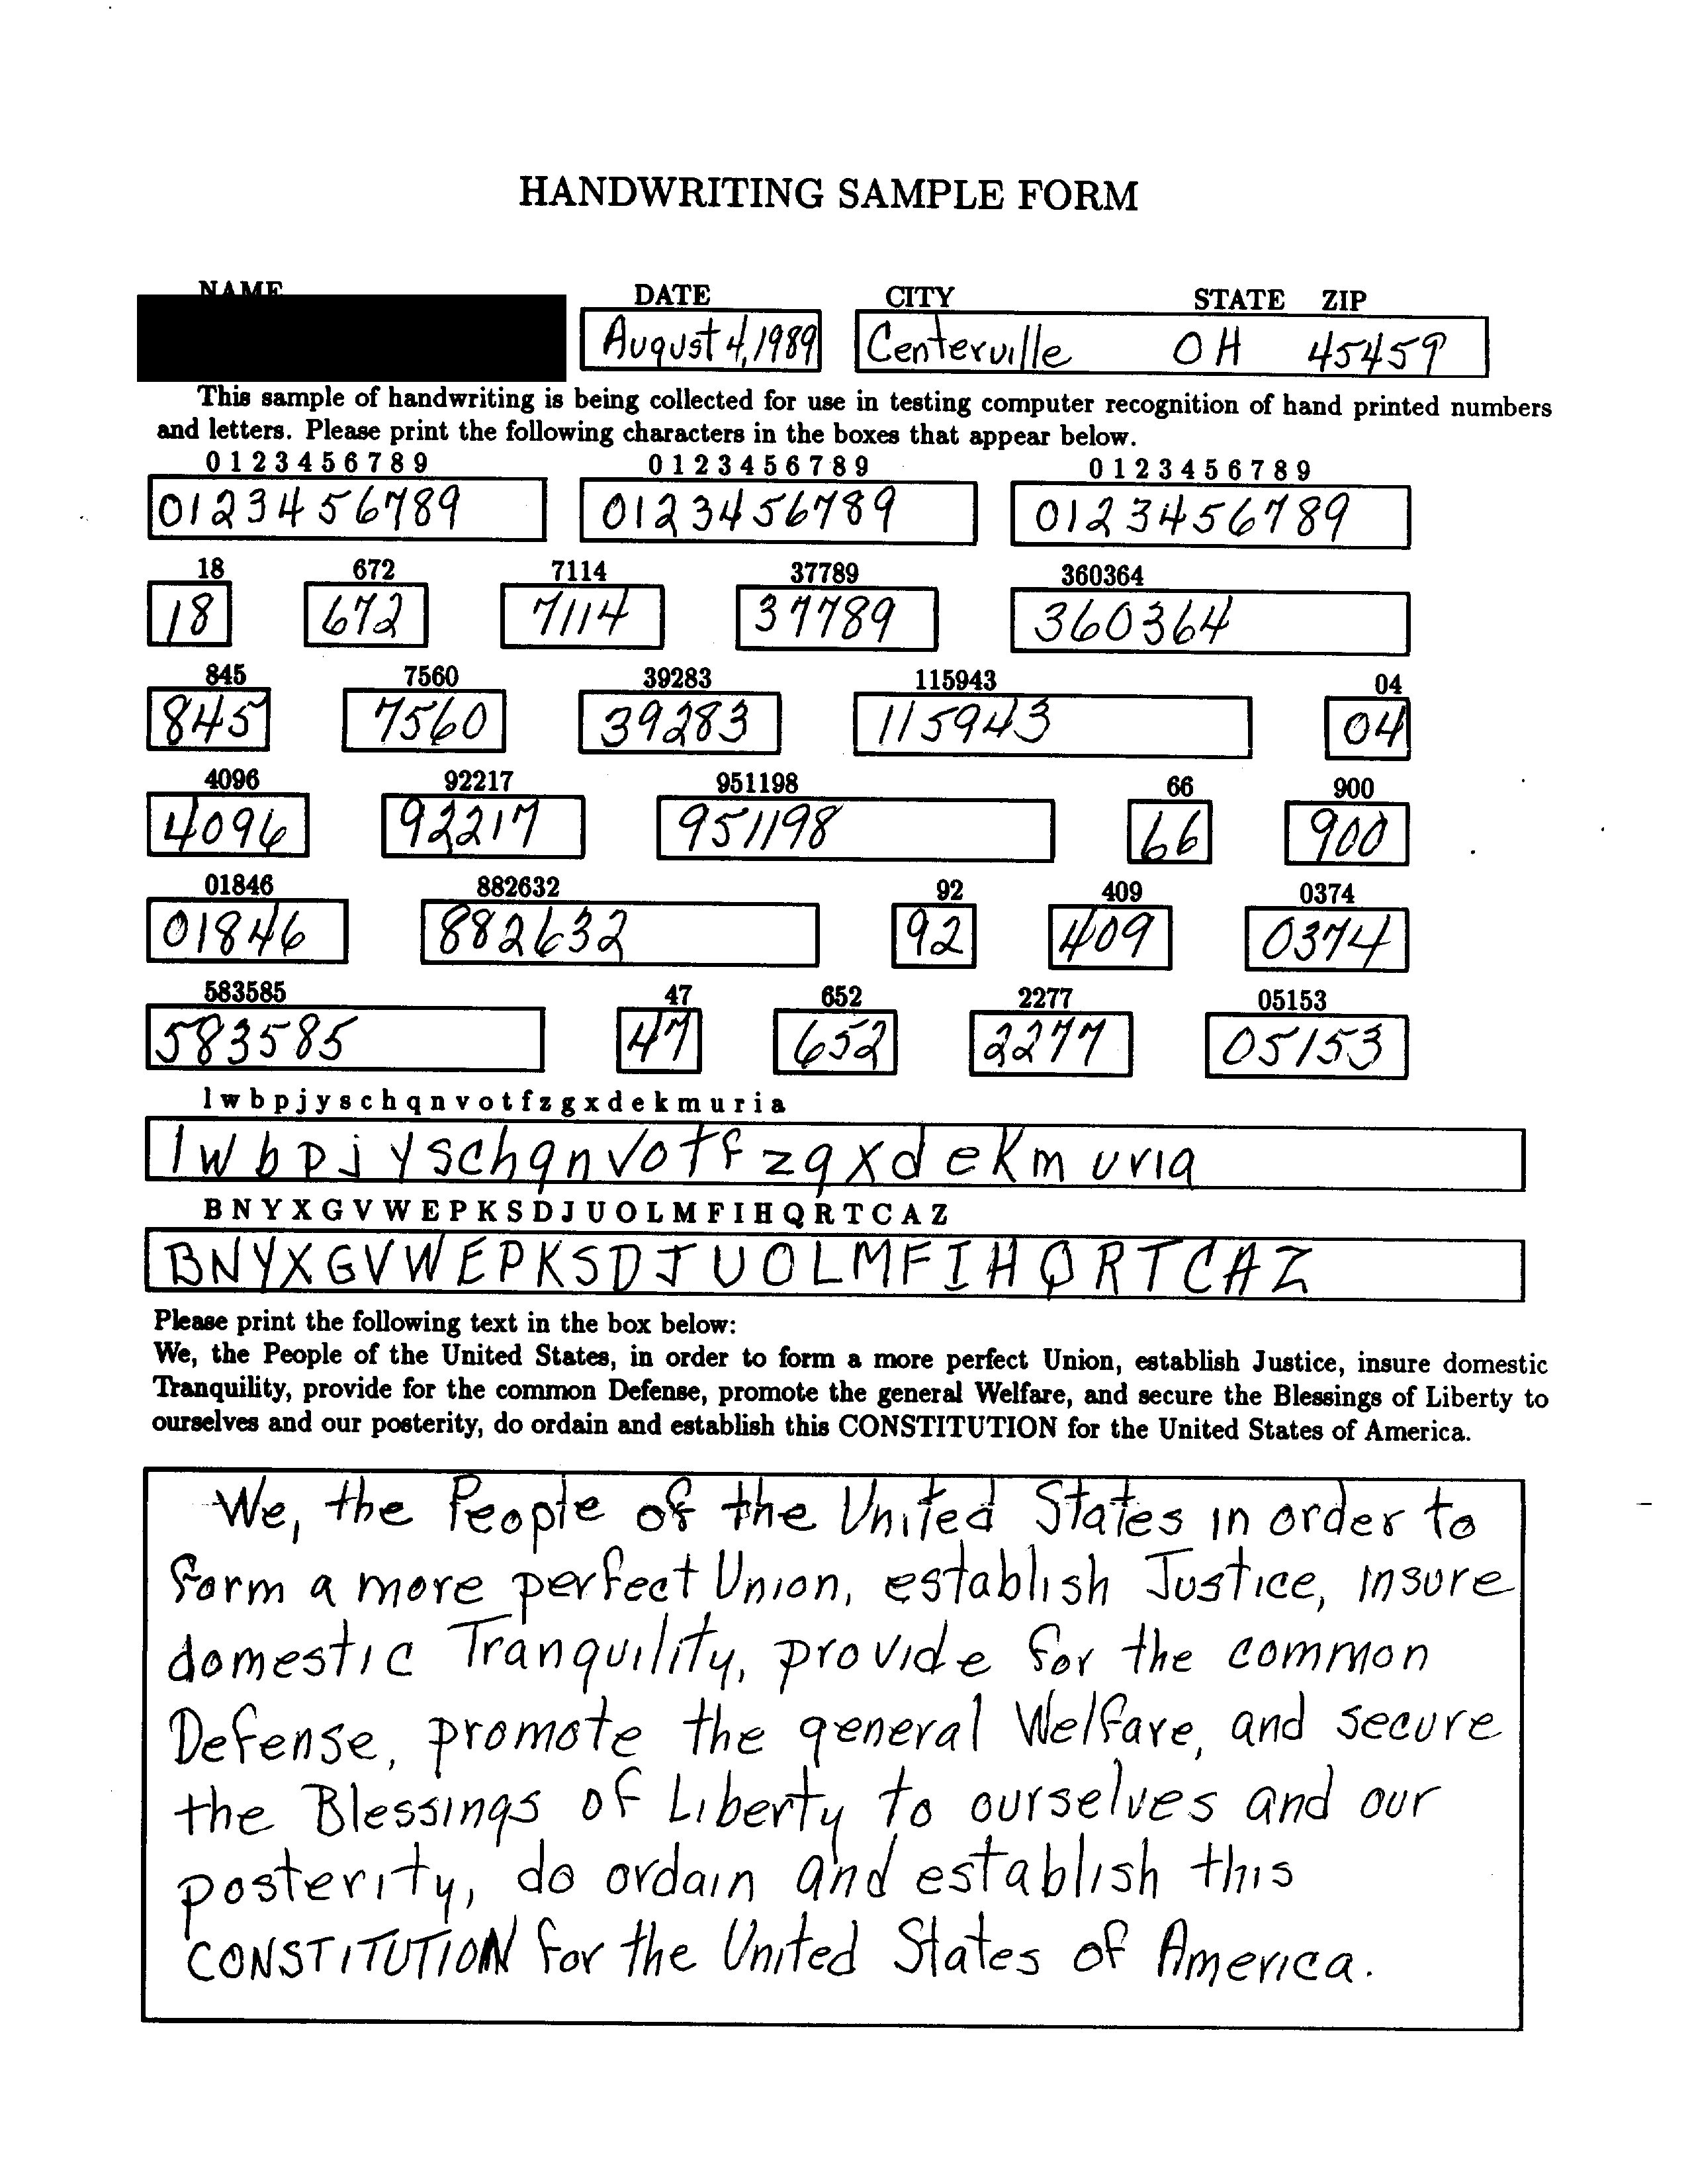 HANDWRITING SAMPLE FORM
NAME DATE CITY STATE ZIP
August 4, 1989 Centerville OH 45459
This sample of handwriting is being collected for use in testing computer recognition of hand printed numbers
and letters. Please print the following characters in the boxes that appear below.
0 1 2 3 4 5 6 7 8 9 0 1 2 3 4 5 6 7 8 9 0 1 2 3 4 5 6 7 8 9
0123456789 0123456789 0123456789
18 672 7114 37789 360364
18 672 7114 37789 360364
845 7560 39283 115943 04
845 7560 39283 115943 04
4096 92217 951198 66 900
4096 92217 951198 66 900
01846 882632 92 409 0374
01846 882632 92 409 0374
583585 47 652 2277 05153
583585 47 652 2277 05153
l w b p j y s c h q n v o t f z g x d e k m u r i a
l w b p j y s c h q n v o t f z g x d e k m u r i a
B N Y X G V W E P K S D J U O L M F I H Q R T C A Z
B N Y X G V W E P K S D J U O L M F I H Q R T C A Z
Please print the following text in the box below:
We, the People of the United States, in order to form a more perfect Union, establish Justice, insure domestic
Tranquility, provide for the common Defense, promote the general Welfare, and secure the Blessings of Liberty to
ourselves and our posterity, do ordain and establish this CONSTITUTION for the United States of America.
We, the People of the United States in order to
form a more perfect Union, establish Justice, insure
domestic Tranquility, provide for the common
Defense, promote the general Welfare, and secure
the Blessings of Liberty to ourselves and our
posterity, do ordain and establish this
CONSTITUTION for the United States of America.